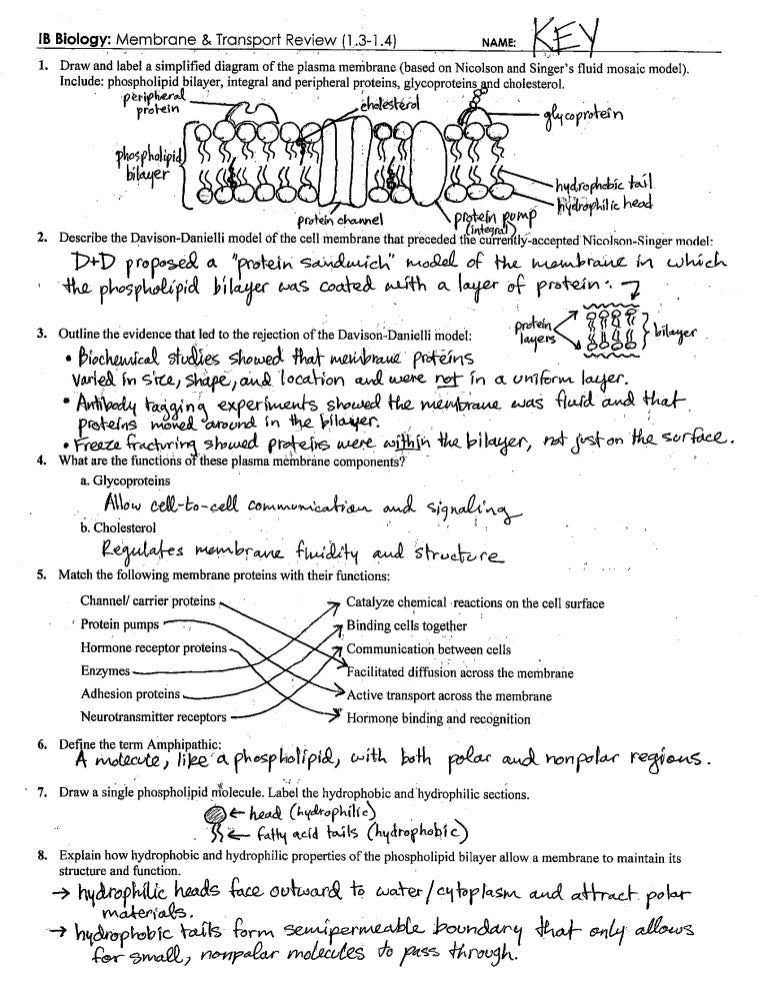 IB Biology: Membrane & Transport Review (1.3-1.4) NAME: KEY
1. Draw and label a simplified diagram of the plasma membrane (based on Nicolson and Singer's fluid mosaic model).
Include: phospholipid bilayer, integral and peripheral proteins, glycoproteins and cholesterol.
peripheral
protein
cholesterol
glycoprotein
phospholipid
bilayer
hydrophobic tail
hydrophilic head
protein channel
protein pump
(integral)
2. Describe the Davison-Danielli model of the cell membrane that preceded the currently-accepted Nicolson-Singer model:
D+D proposed a "protein sandwich" model of the membrane in which
the phospholipid bilayer was coated with a layer of protein:
protein
layers
bilayer
3. Outline the evidence that led to the rejection of the Davison-Danielli model:
• Biochemical studies showed that membrane proteins
varied in size, shape, and location and were not in a uniform layer.
• Antibody tagging experiments showed the membrane was fluid and that
proteins moved around in the bilayer.
• Freeze fracturing showed proteins were within the bilayer, not just on the surface.
4. What are the functions of these plasma membrane components?
a. Glycoproteins
Allow cell-to-cell communication and signaling
b. Cholesterol
Regulates membrane fluidity and structure
5. Match the following membrane proteins with their functions:
Channel/ carrier proteins Catalyze chemical reactions on the cell surface
Protein pumps Binding cells together
Hormone receptor proteins Communication between cells
Enzymes Facilitated diffusion across the membrane
Adhesion proteins Active transport across the membrane
Neurotransmitter receptors Hormone binding and recognition
6. Define the term Amphipathic:
A molecule, like a phospholipid, with both polar and nonpolar regions.
7. Draw a single phospholipid molecule. Label the hydrophobic and hydrophilic sections.
← head (hydrophilic)
← fatty acid tails (hydrophobic)
8. Explain how hydrophobic and hydrophilic properties of the phospholipid bilayer allow a membrane to maintain its
structure and function.
→ hydrophilic heads face outward to water/cytoplasm and attract polar
materials.
→ hydrophobic tails form semipermeable boundary that only allows
for small, nonpolar molecules to pass through.